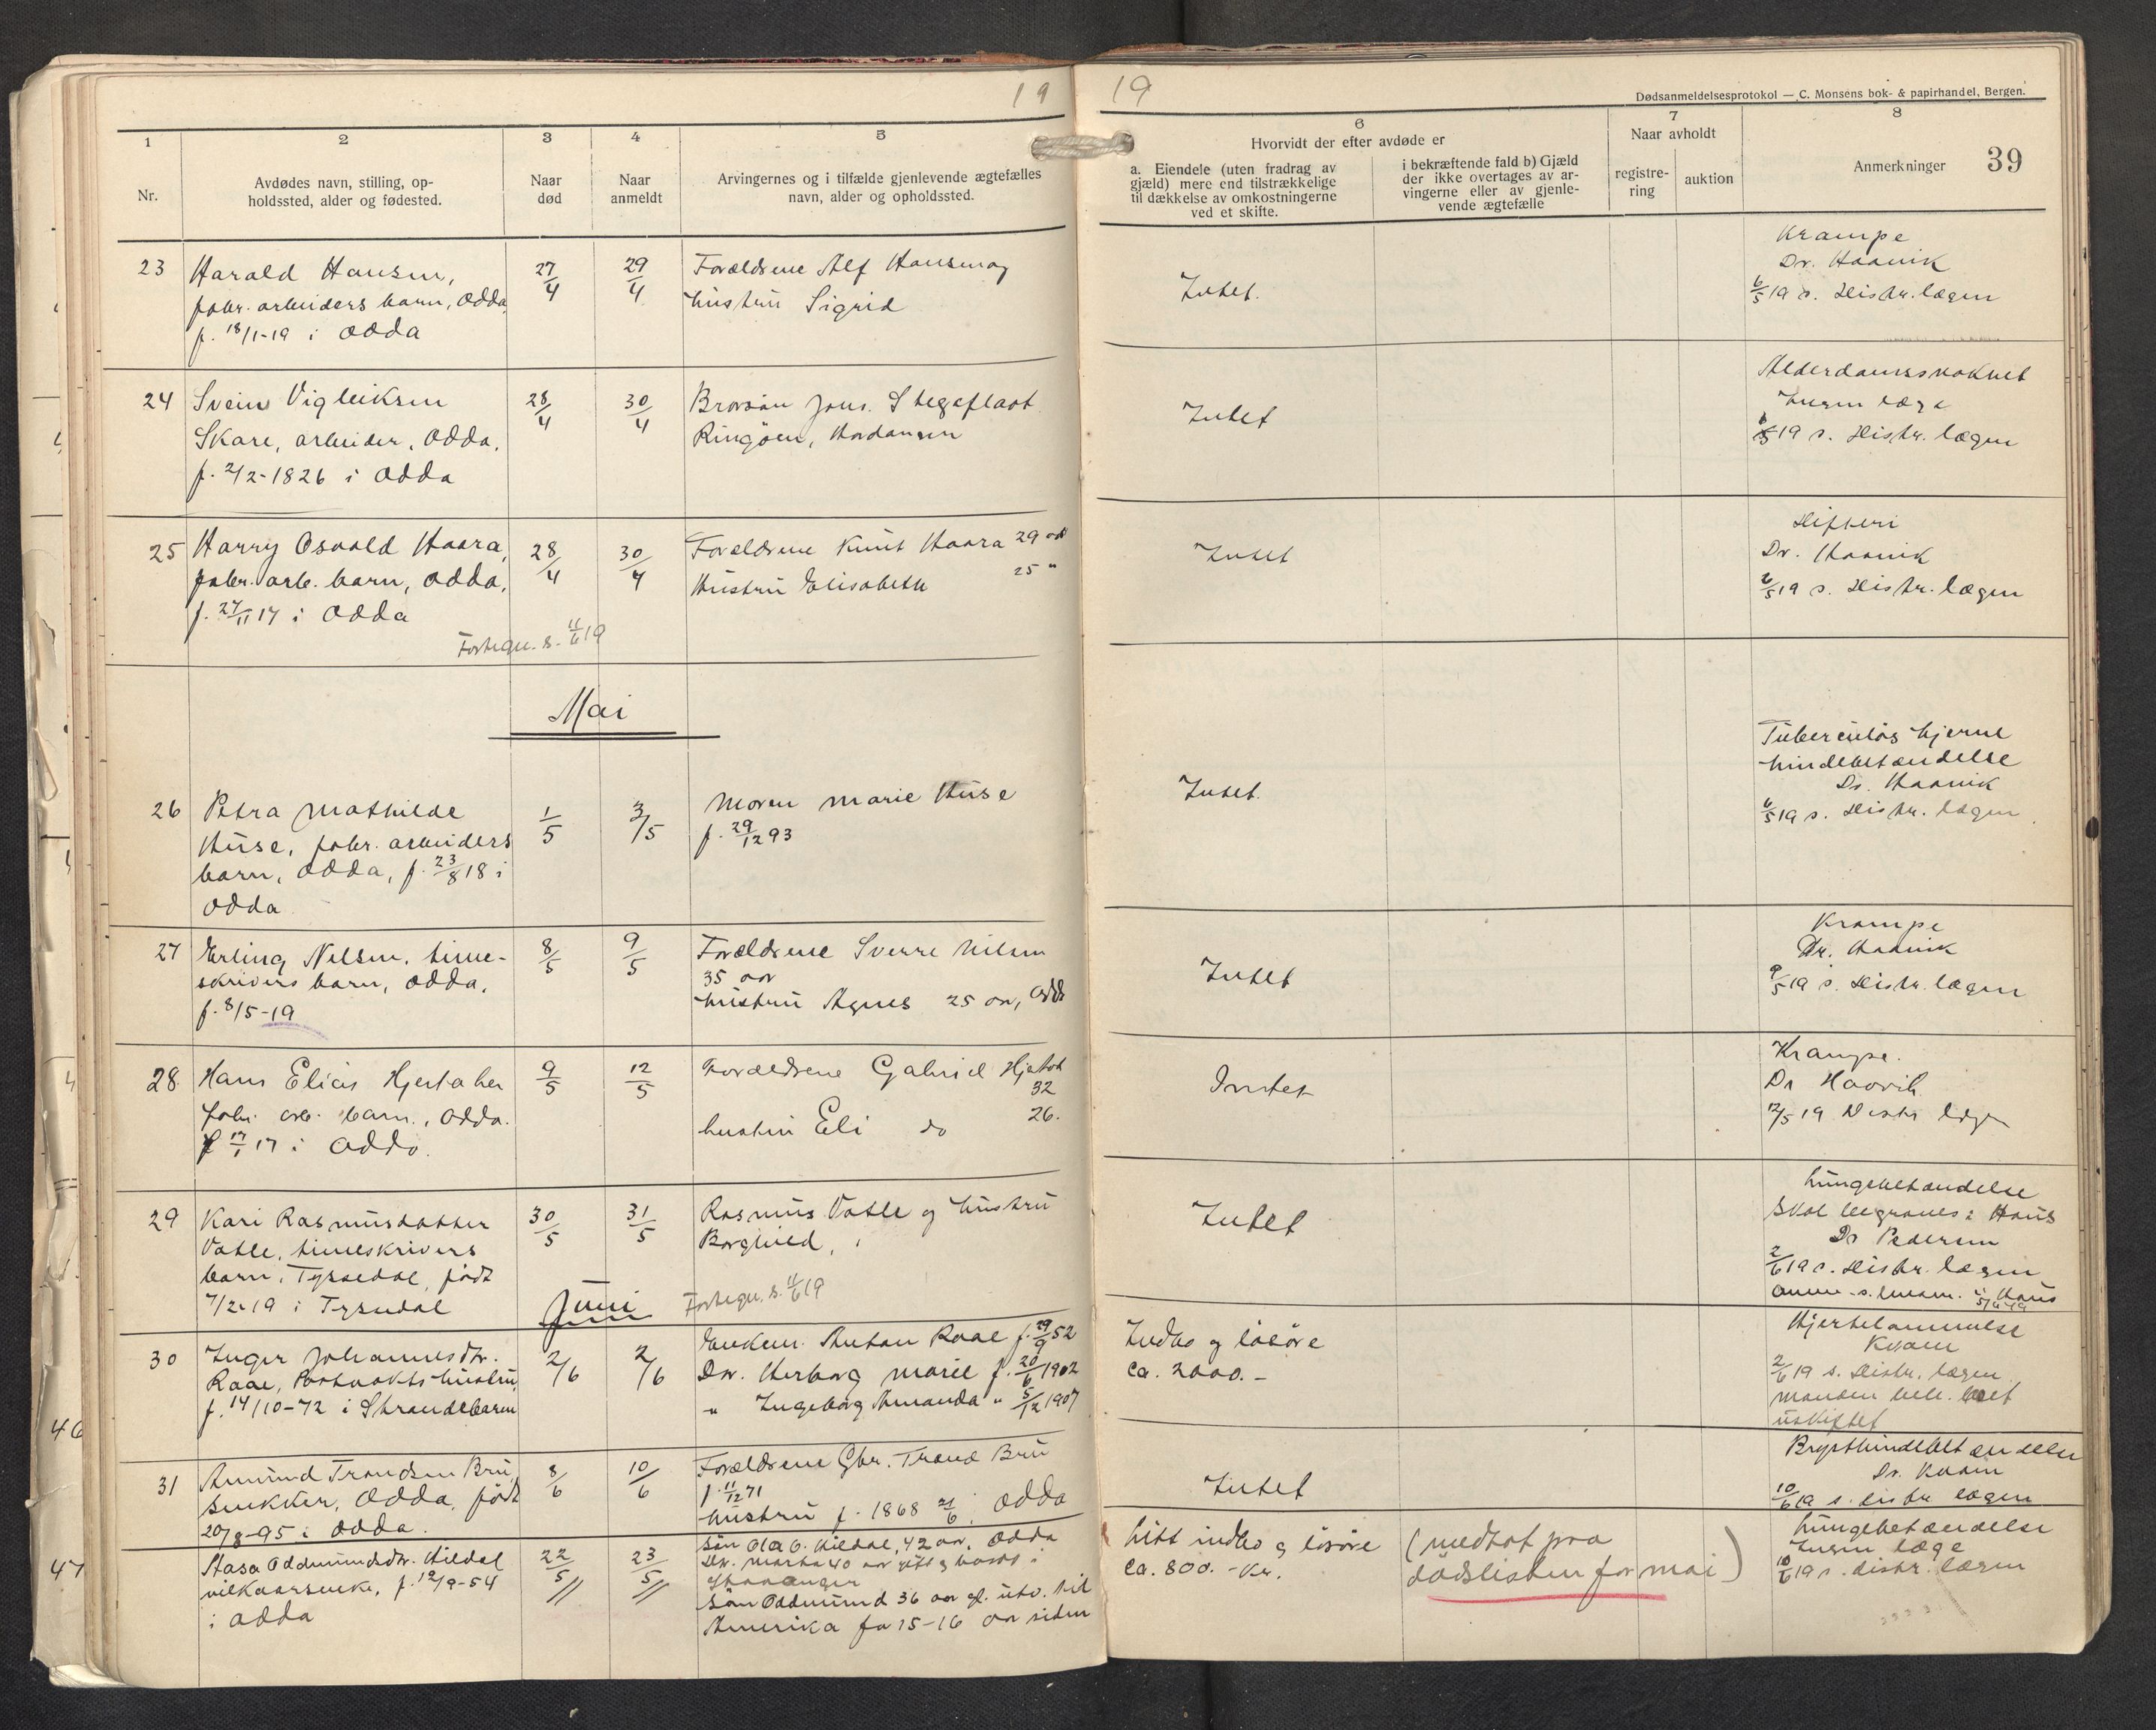 19
1
2
3
4
5
Nr.
Avdødes navn, stilling, op-
holdssted, alder og fødested.
Naar
død
Naar
anmeldt
Arvingernes og i tilfælde gjenlevende ægtefælles
navn, alder og opholdssted.
23
Harald Hansen,
fabr. arbeiders barn, Odda,
f. 18/1-19 i Odda
27/4
29/4
Forældrene Alf Hansen og
hustru Sigrid
24
Svein Vigleiksen
Skare, arbeider, Odda.
f. 2/2-1826 i Odda
28/4
30/4
Brorsøn Jons. Stegaflaat
Ringøen,
25
Harry Osvald Haara,
fabr. arb. barn, Odda,
f. 27/11 17 i Odda
28/4
30/4
Forældrene Knut Haara 29 aar
Hustru Elisabeth 25 "
Fortegn. s. 11/6 19
Mai
26
Petra Mathilde
Huse, fabr. arbeiders
barn, Odda, f. 23/8 18 i
Odda
1/5
3/5
Moren Marie Huse
f. 29/12 93
27
Erling Nilsen, time-
skrivers barn, Odda.
f. 8/5-19
8/5
9/5
Forældrene Sverre Nilsen
35 aar
hustru Agnes 25 aar, Odda
28
Hans Elias Hjertaker
fabr. arb. barn, Odda.
f 17 i Odda.
9/5
12/5
Forældrene Gabriel
32
hustru Eli do 26.
29
Kari Rasmusdatter
Vatle, timeskrivers
barn, Tyssedal, født
7/2-19 i Tyssedal
30/5
31/5
Rasmus Vatle og hustru
Borghild,
Juni
Fortegn. s. 11/6 19
30
Inger Johannesdtr.
Raae, hustru,
f. 14/10-72 i Strandebarm
2/6
2/6
Enkem. Anton Raae f. 29/9 52
Dtr. Herborg Marie f. 20/6 1902
" Ingeborg Amanda " 5/12 1907
31
Amund Trondsen Bru,
snekker, Odda, født
20/8-95 i Odda.
8/6
10/6
Forældrene Gbr. Trond Bru
f. 11/12 71
hustru f. 1868 21/6 i Odda
Aasa Oddmundsdtr. Hildal
vilkaarsenke, f. 12/9-54
i Odda
22/5
23/5
Søn Ola O. Hildal, 42 aar, Odda
Dtr. Marta 40 aar gift og bosat i
Stavanger
Søn Oddmund 36 aar gl. utv. til
Amerika for 15-16 aar siden
19
Dødsanmeldelsesprotokol — C. Monsens bok- & papirhandel, Bergen.
6
7
8
Hvorvidt der efter avdøde er
Naar avholdt
a. Eiendele (uten fradrag av
gjæld) mere end tilstrækkelige
til dækkelse av omkostningerne
ved et skifte.
i bekræftende fald b) Gjæld
der ikke overtages av ar-
vingerne eller av gjenle-
vende ægtefælle
registre-
ring
auktion
Anmerkninger
39
Intet.
Krampe
Dr. Haavik
6/5 19 s. Distr. lægen
Intet
Alderdomssvakhet
Ingen læge
6/5 19 s. Distr. lægen
Intet
Difteri
Dr. Haavik
6/5 19 s. Distr. lægen
Intet.
Tuberculøs hjerne
hindebetændelse
Dr. Haavik
6/5 19 s. Distr. lægen
Intet
Krampe
Dr. Haavik
9/5 19 s. Distr. lægen
Intet
Krampe.
Dr Haavik
12/5 19 Distr læge
Intet
Lungebetændelse
Skal begraves i Haus
Dr Pedersen
2/6 19 s. Distr. lægen
i Haus
Indbo og løsøre
ca. 2000.-
Hjertelammelse
Kvam
2/6 19 s. Distr. lægen
Manden boet
uskiftet
Intet
Brysthindebetændelse
Dr. Kvam
10/6 19 s. distr lægen
Litt indbo og løsøre
ca. 800.- kr.
(medtat paa
dødslisten for mai)
Lungebetændelse
Ingen læge
10/6 19 s. distr. lægen
46
47